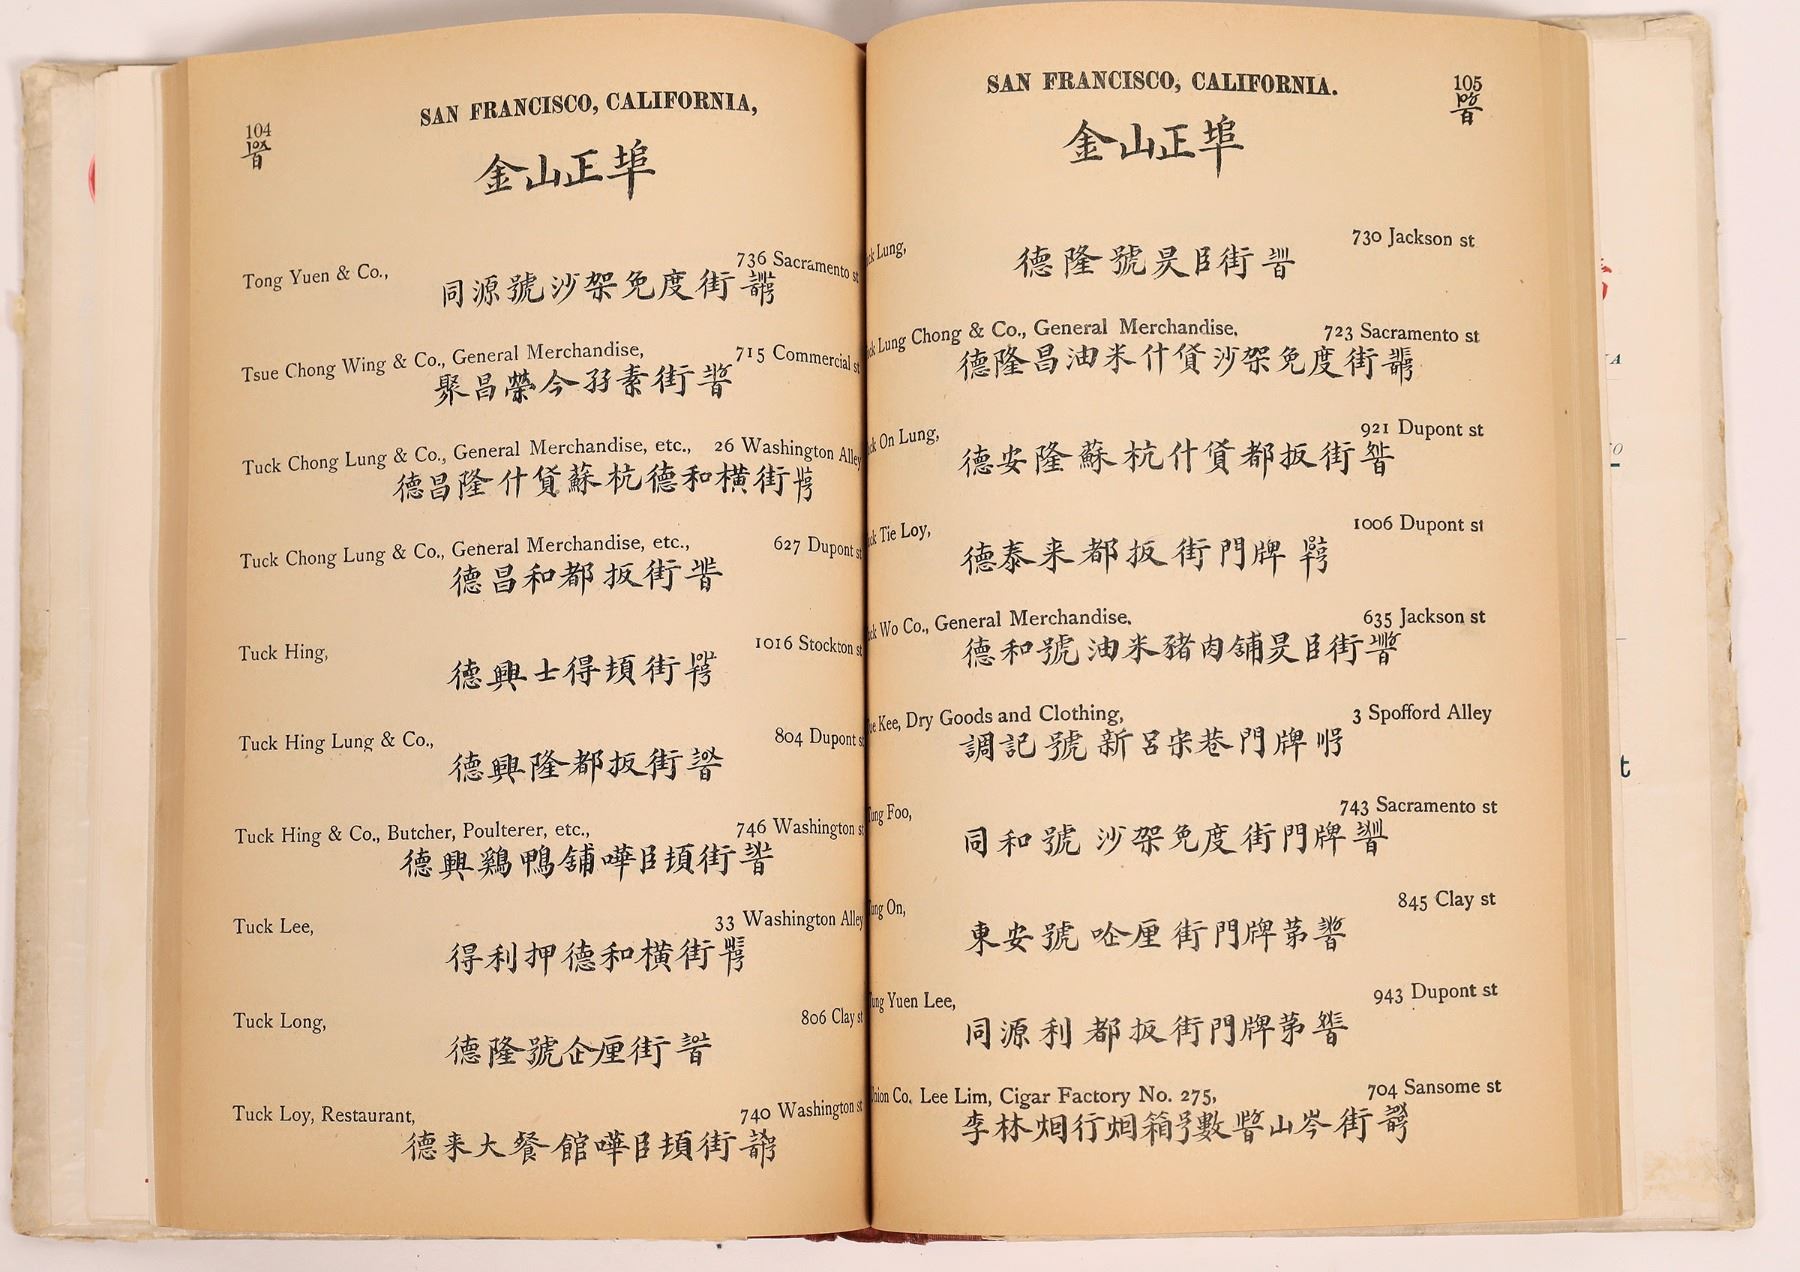 104
SAN FRANCISCO, CALIFORNIA,
金山正埠
Tong Yuen & Co., 736 Sacramento st
同源號沙架免度街
Tsue Chong Wing & Co., General Merchandise, 715 Commercial st
聚昌榮今孖素街
Tuck Chong Lung & Co., General Merchandise, etc., 26 Washington Alley
德昌隆什貨蘇杭德和橫街
Tuck Chong Lung & Co., General Merchandise, etc., 627 Dupont st
德昌和都扳街
Tuck Hing, 1016 Stockton st
德興士得頓街
Tuck Hing Lung & Co., 804 Dupont st
德興隆都扳街
Tuck Hing & Co., Butcher, Poulterer, etc., 746 Washington st
德興鷄鴨舖嘩臣頓街
Tuck Lee, 33 Washington Alley
得利押德和橫街
Tuck Long, 806 Clay st
德隆號企厘街
Tuck Loy, Restaurant, 740 Washington st
德来大餐館嘩臣頓街
105
SAN FRANCISCO, CALIFORNIA.
金山正埠
Lung, 730 Jackson st
德隆號昃臣街
Lung Chong & Co., General Merchandise. 723 Sacramento st
德隆昌油米什貨沙架免度街
On Lung, 921 Dupont st
德安隆蘇杭什貨都扳街
Tie Loy, 1006 Dupont st
德泰来都扳街門牌
Wo Co., General Merchandise. 635 Jackson st
德和號油米豬肉舖昃臣街
Kee, Dry Goods and Clothing, 3 Spofford Alley
調記號新呂宋巷門牌
Foo, 743 Sacramento st
同和號沙架免度街門牌
On, 845 Clay st
東安號唫厘街門牌苐
Yuen Lee, 943 Dupont st
同源利都扳街門牌苐
Co. Lee Lim, Cigar Factory No. 275, 704 Sansome st
李林烟行烟箱号數山岑街